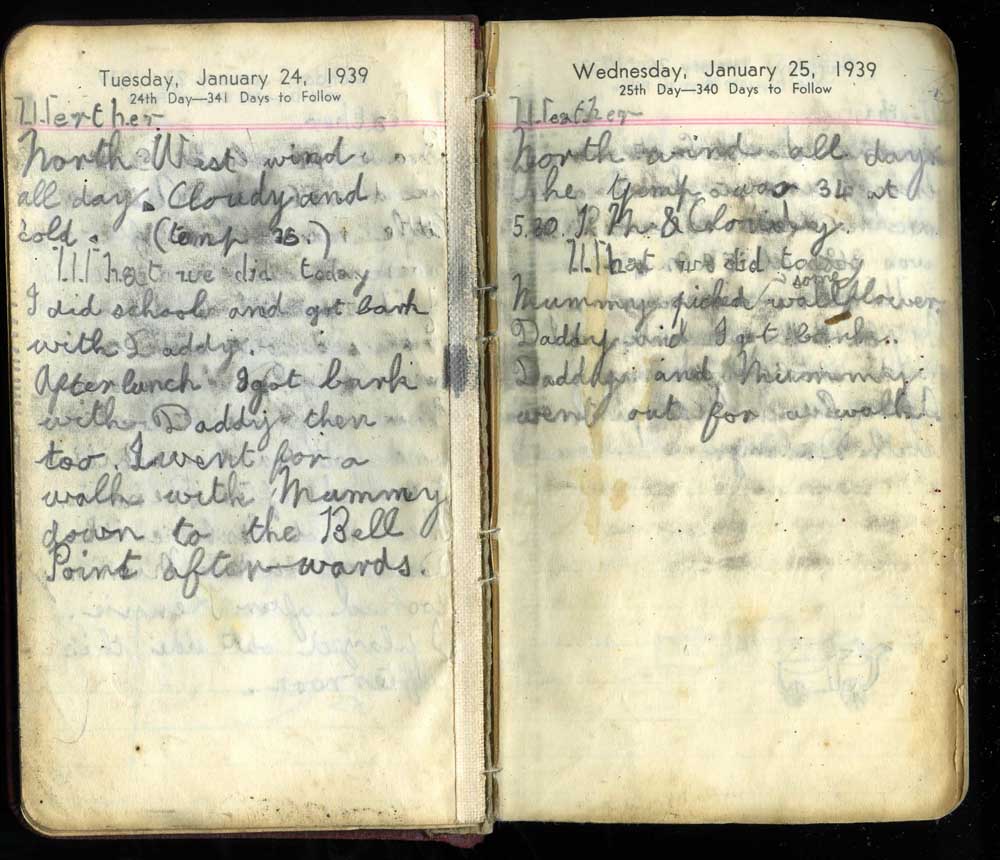 Tuesday, January 24, 1939
24th Day—341 Days to Follow
Werther
North West wind
all day. Cloudy and
cold. (temp 35.)
What we did today
I did school and got bark
with Daddy.
After lunch I got bark
with Daddy then
too. I went for a
walk with Mummy
down to the Bell
Point after-wards.
Wednesday, January 25, 1939
25th Day—340 Days to Follow
Weather
North wind all day
he temp was 34 at
5.30 P.M. & Cloudy.
What we did today
some
Mummy picked wallflower
Daddy and I got bark.
Daddy and Mummy
went out for a walk